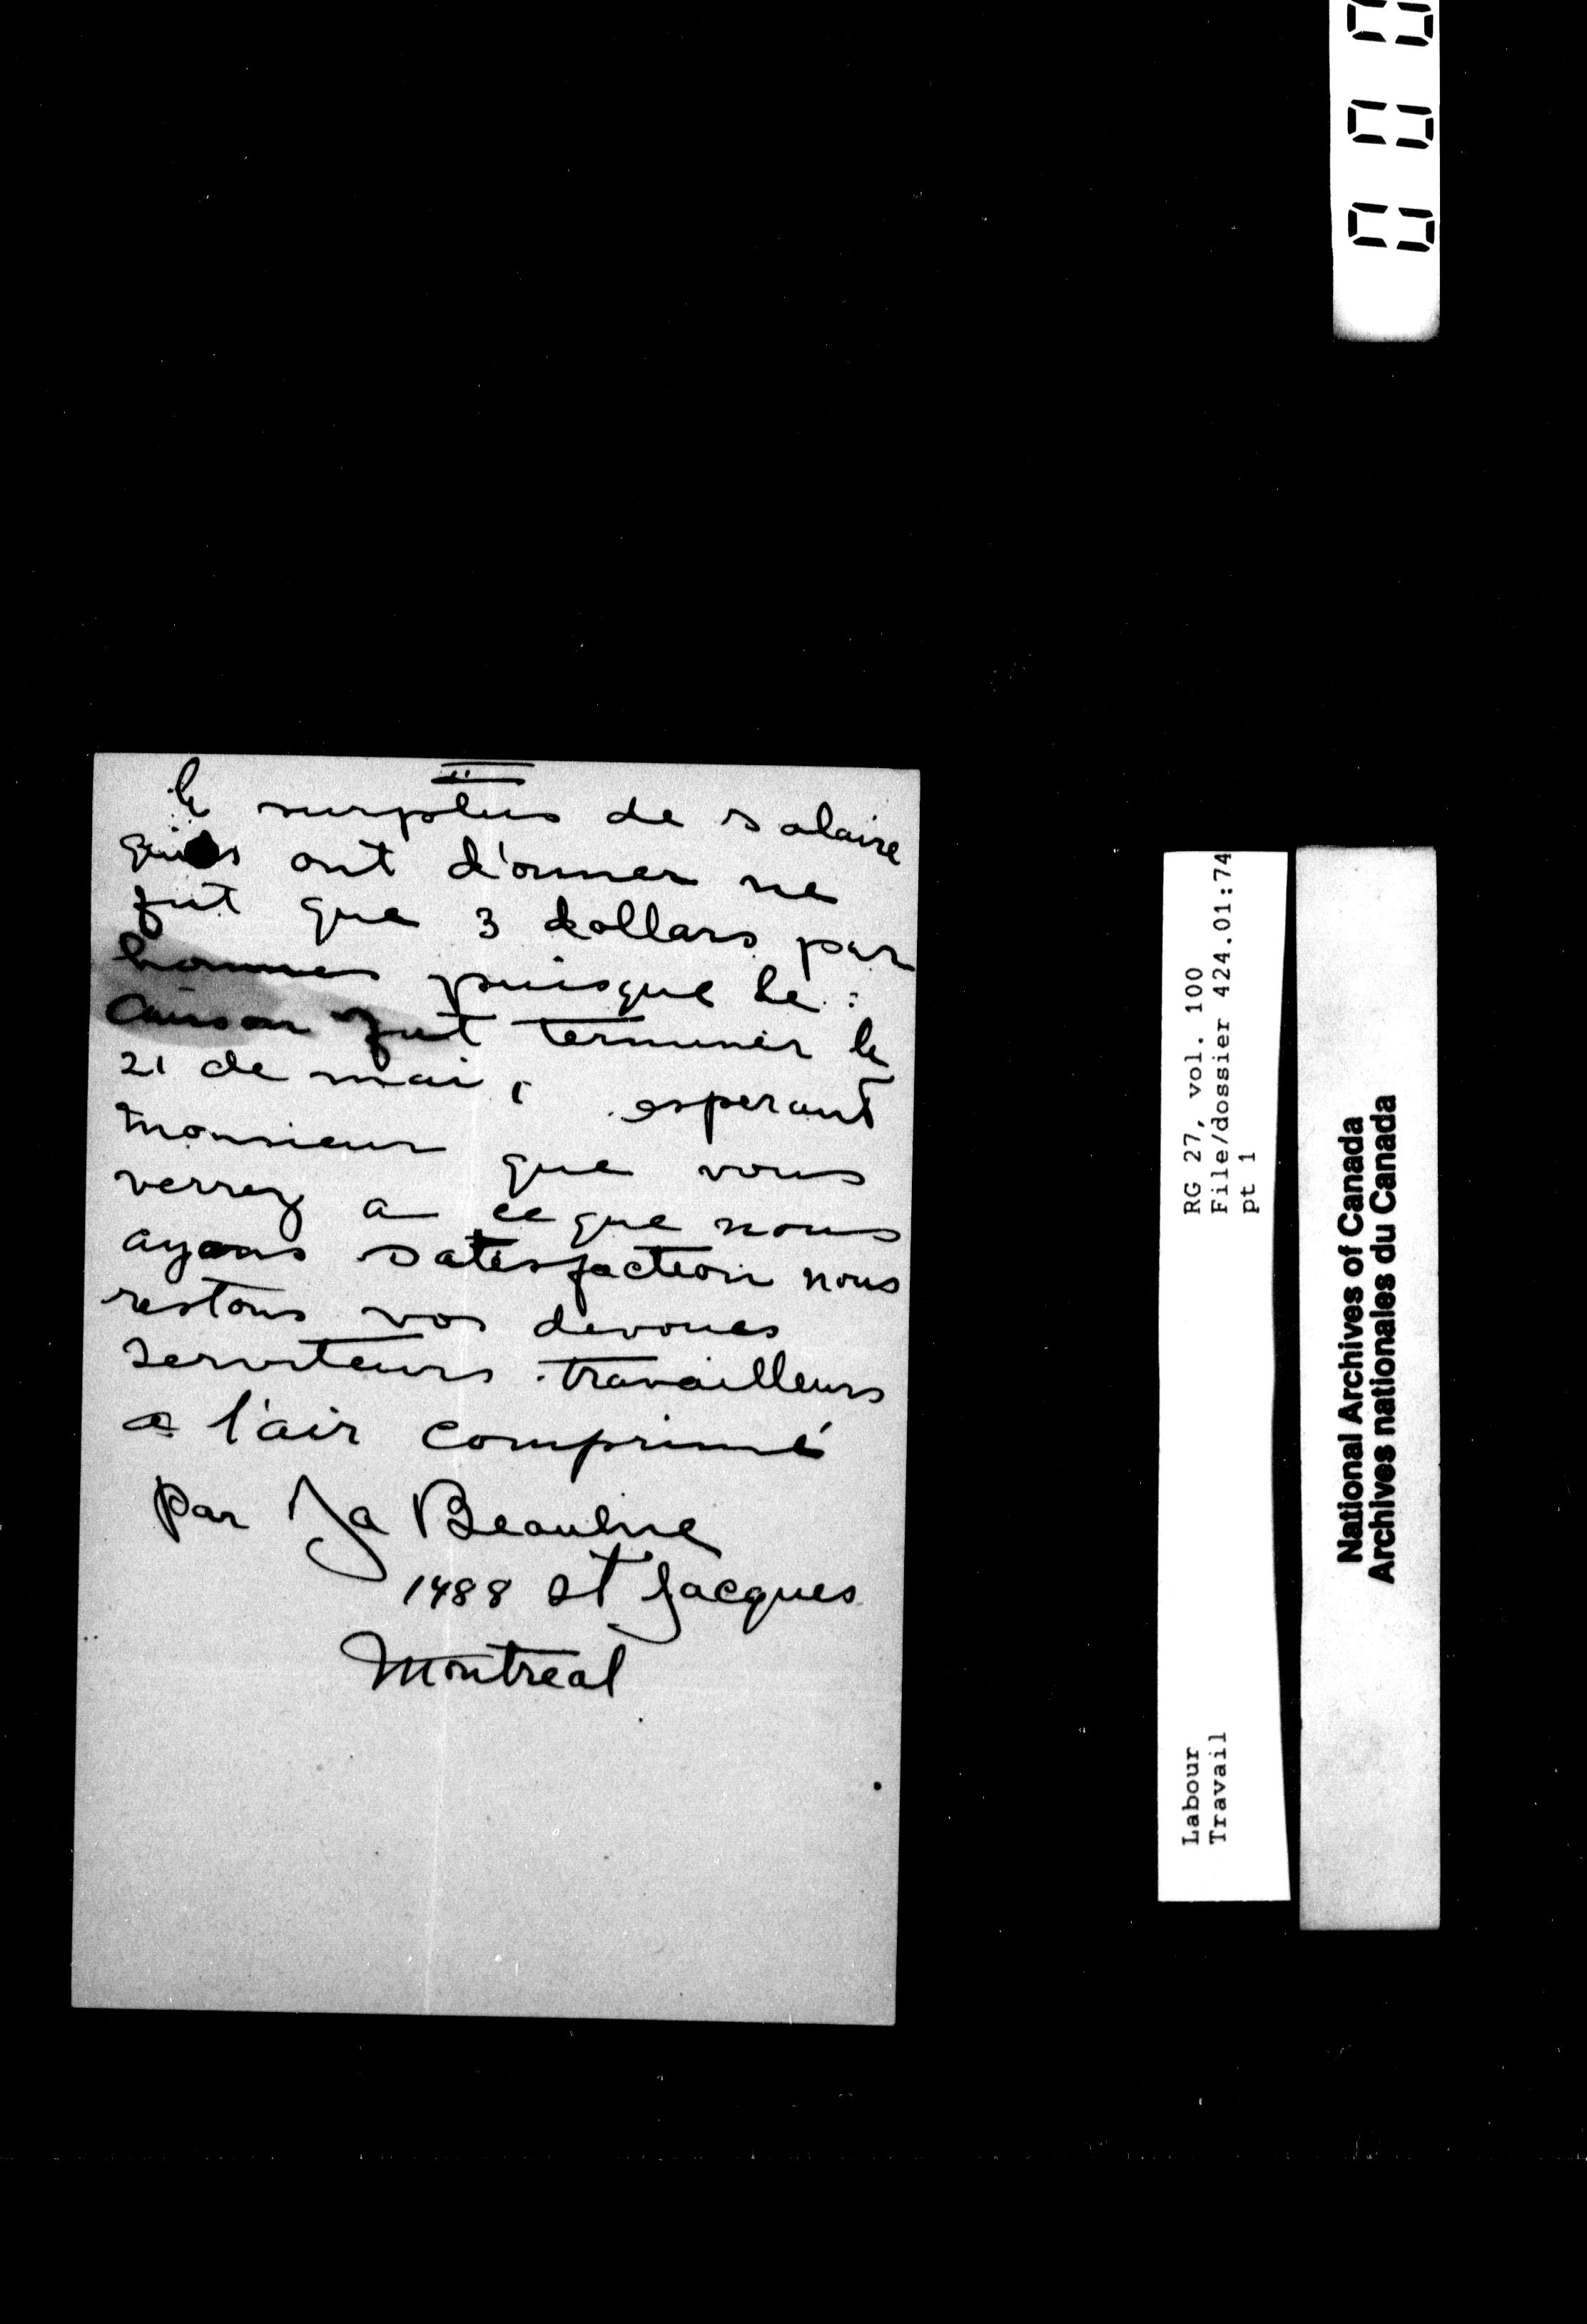 II
le surplus de salaire
qui●s ont d'onner ne
fut que 3 dollars par
hommes puisque le :
Caison fut terminer le
21 de mai, esperant
monsieur que vous
verrez a ce que nous
ayons satisfaction nous
restons vos devoues
serviteurs travailleurs
a l'air comprimé
par Ja Beaulne
1488 St Jacques
Montreal
Labour
Travail
RG 27, vol. 100
File/dossier 424.01:74
pt 1
National Archives of Canada
Archives nationales du Canada